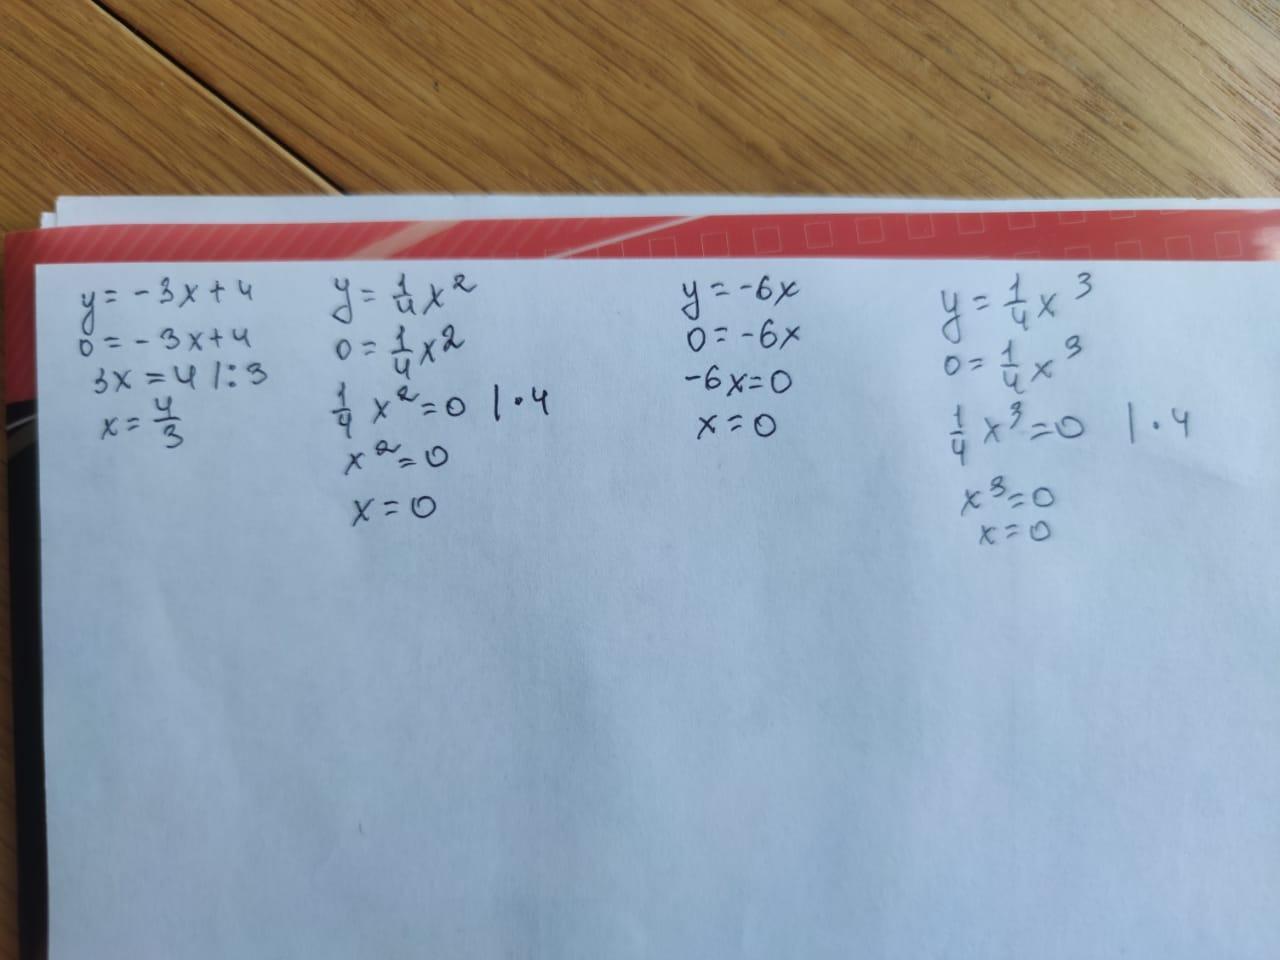 y = -3x + 4
0 = -3x + 4
3x = 4 | : 3
x = 4/3
y = 1/4 x²
0 = 1/4 x²
1/4 x² = 0 | · 4
x² = 0
x = 0
y = -6x
0 = -6x
-6x = 0
x = 0
y = 1/4 x³
0 = 1/4 x³
1/4 x³ = 0 | · 4
x³ = 0
x = 0